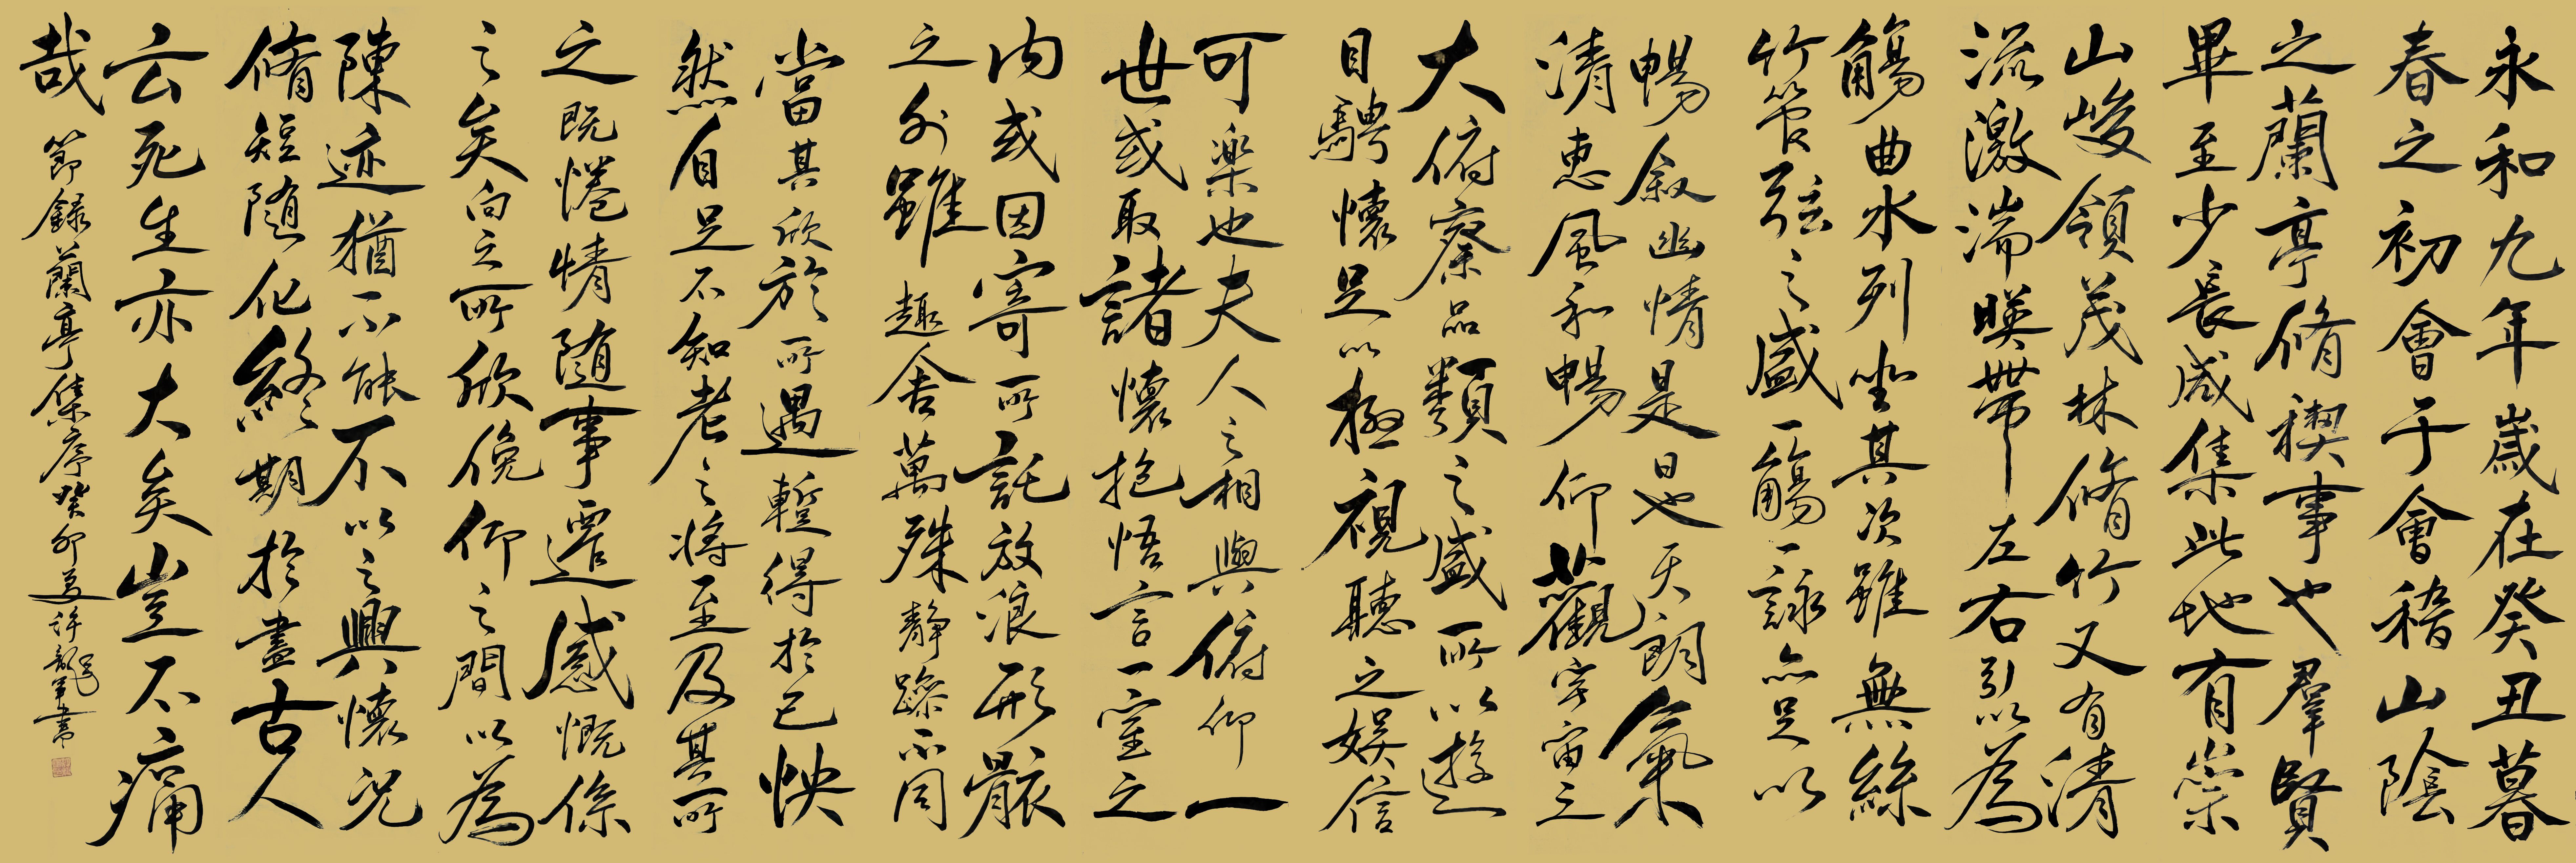 永和九年歲在癸丑暮
春之初會于會稽山陰
之蘭亭脩禊事也羣賢
畢至少長咸集此地有崇
山峻領茂林脩竹又有清
流激湍暎帶左右引以為
觴曲水列坐其次雖無絲
竹管弦之盛一觴一詠亦足以
暢叙幽情是日也天朗氣
清惠風和暢仰觀宇宙之
大俯察品類之盛所以遊
目騁懷足以極視聽之娛信
可楽也夫人之相與俯仰一
世或取諸懷抱悟言一室之
内或因寄所託放浪形骸
之外雖趣舍萬殊静躁不同
當其欣於所遇蹔得於己怏
然自足不知老之將至及其所
之既惓情隨事遷感慨係
之矣向之所欣俛仰之間以為
陳迹猶不能不以之興懷況
脩短隨化終期於盡古人
云死生亦大矣豈不痛
哉
節錄蘭亭集序癸卯夏許軍書